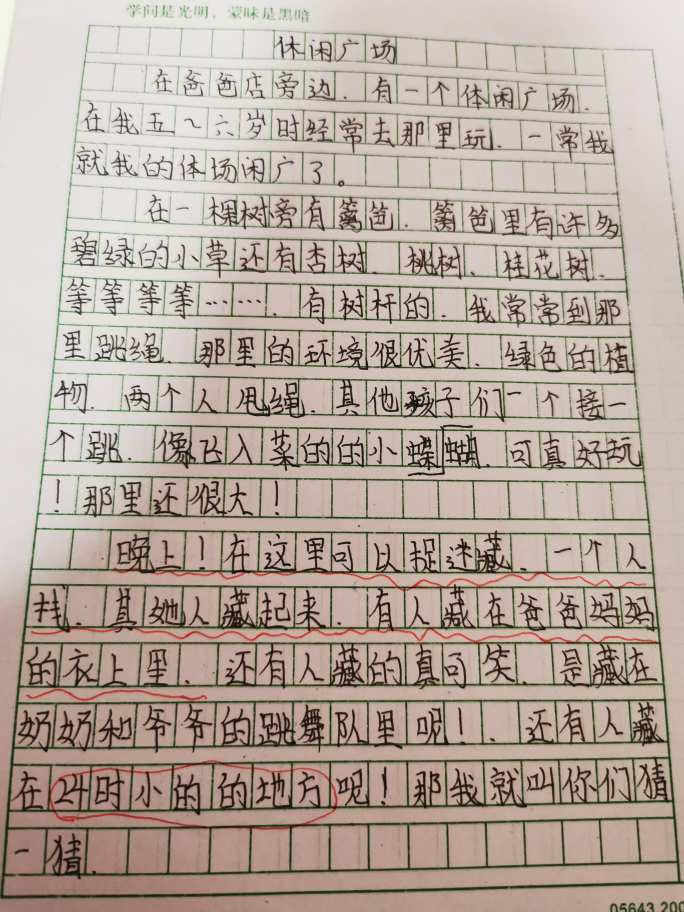 学问是光明，蒙昧是黑暗
休闲广场
在爸爸店旁边.有一个体闲广场.
在我五~六岁时经常去那里玩.一常我
就我的体场闲广了。
在一棵树旁有篱笆.篱笆里有许多
碧绿的小草还有杏树.桃树.桂花树.
等等等等…….有树杆的.我常常到那
里跳绳.那里的环境很优美.绿色的植
物.两个人甩绳.其他孩子们一个接一
个跳.像飞入菜的的小蝶蝴.可真好玩
!那里还很大!
晚上!在这里可以捉迷藏.一个人
找.其她人藏起来.有人藏在爸爸妈妈
的衣上里.还有人藏的真可笑.是藏在
奶奶和爷爷的跳舞队里呢!.还有人藏
在24时小的的地方呢!那我就叫你们猜
一猜.
05643.200